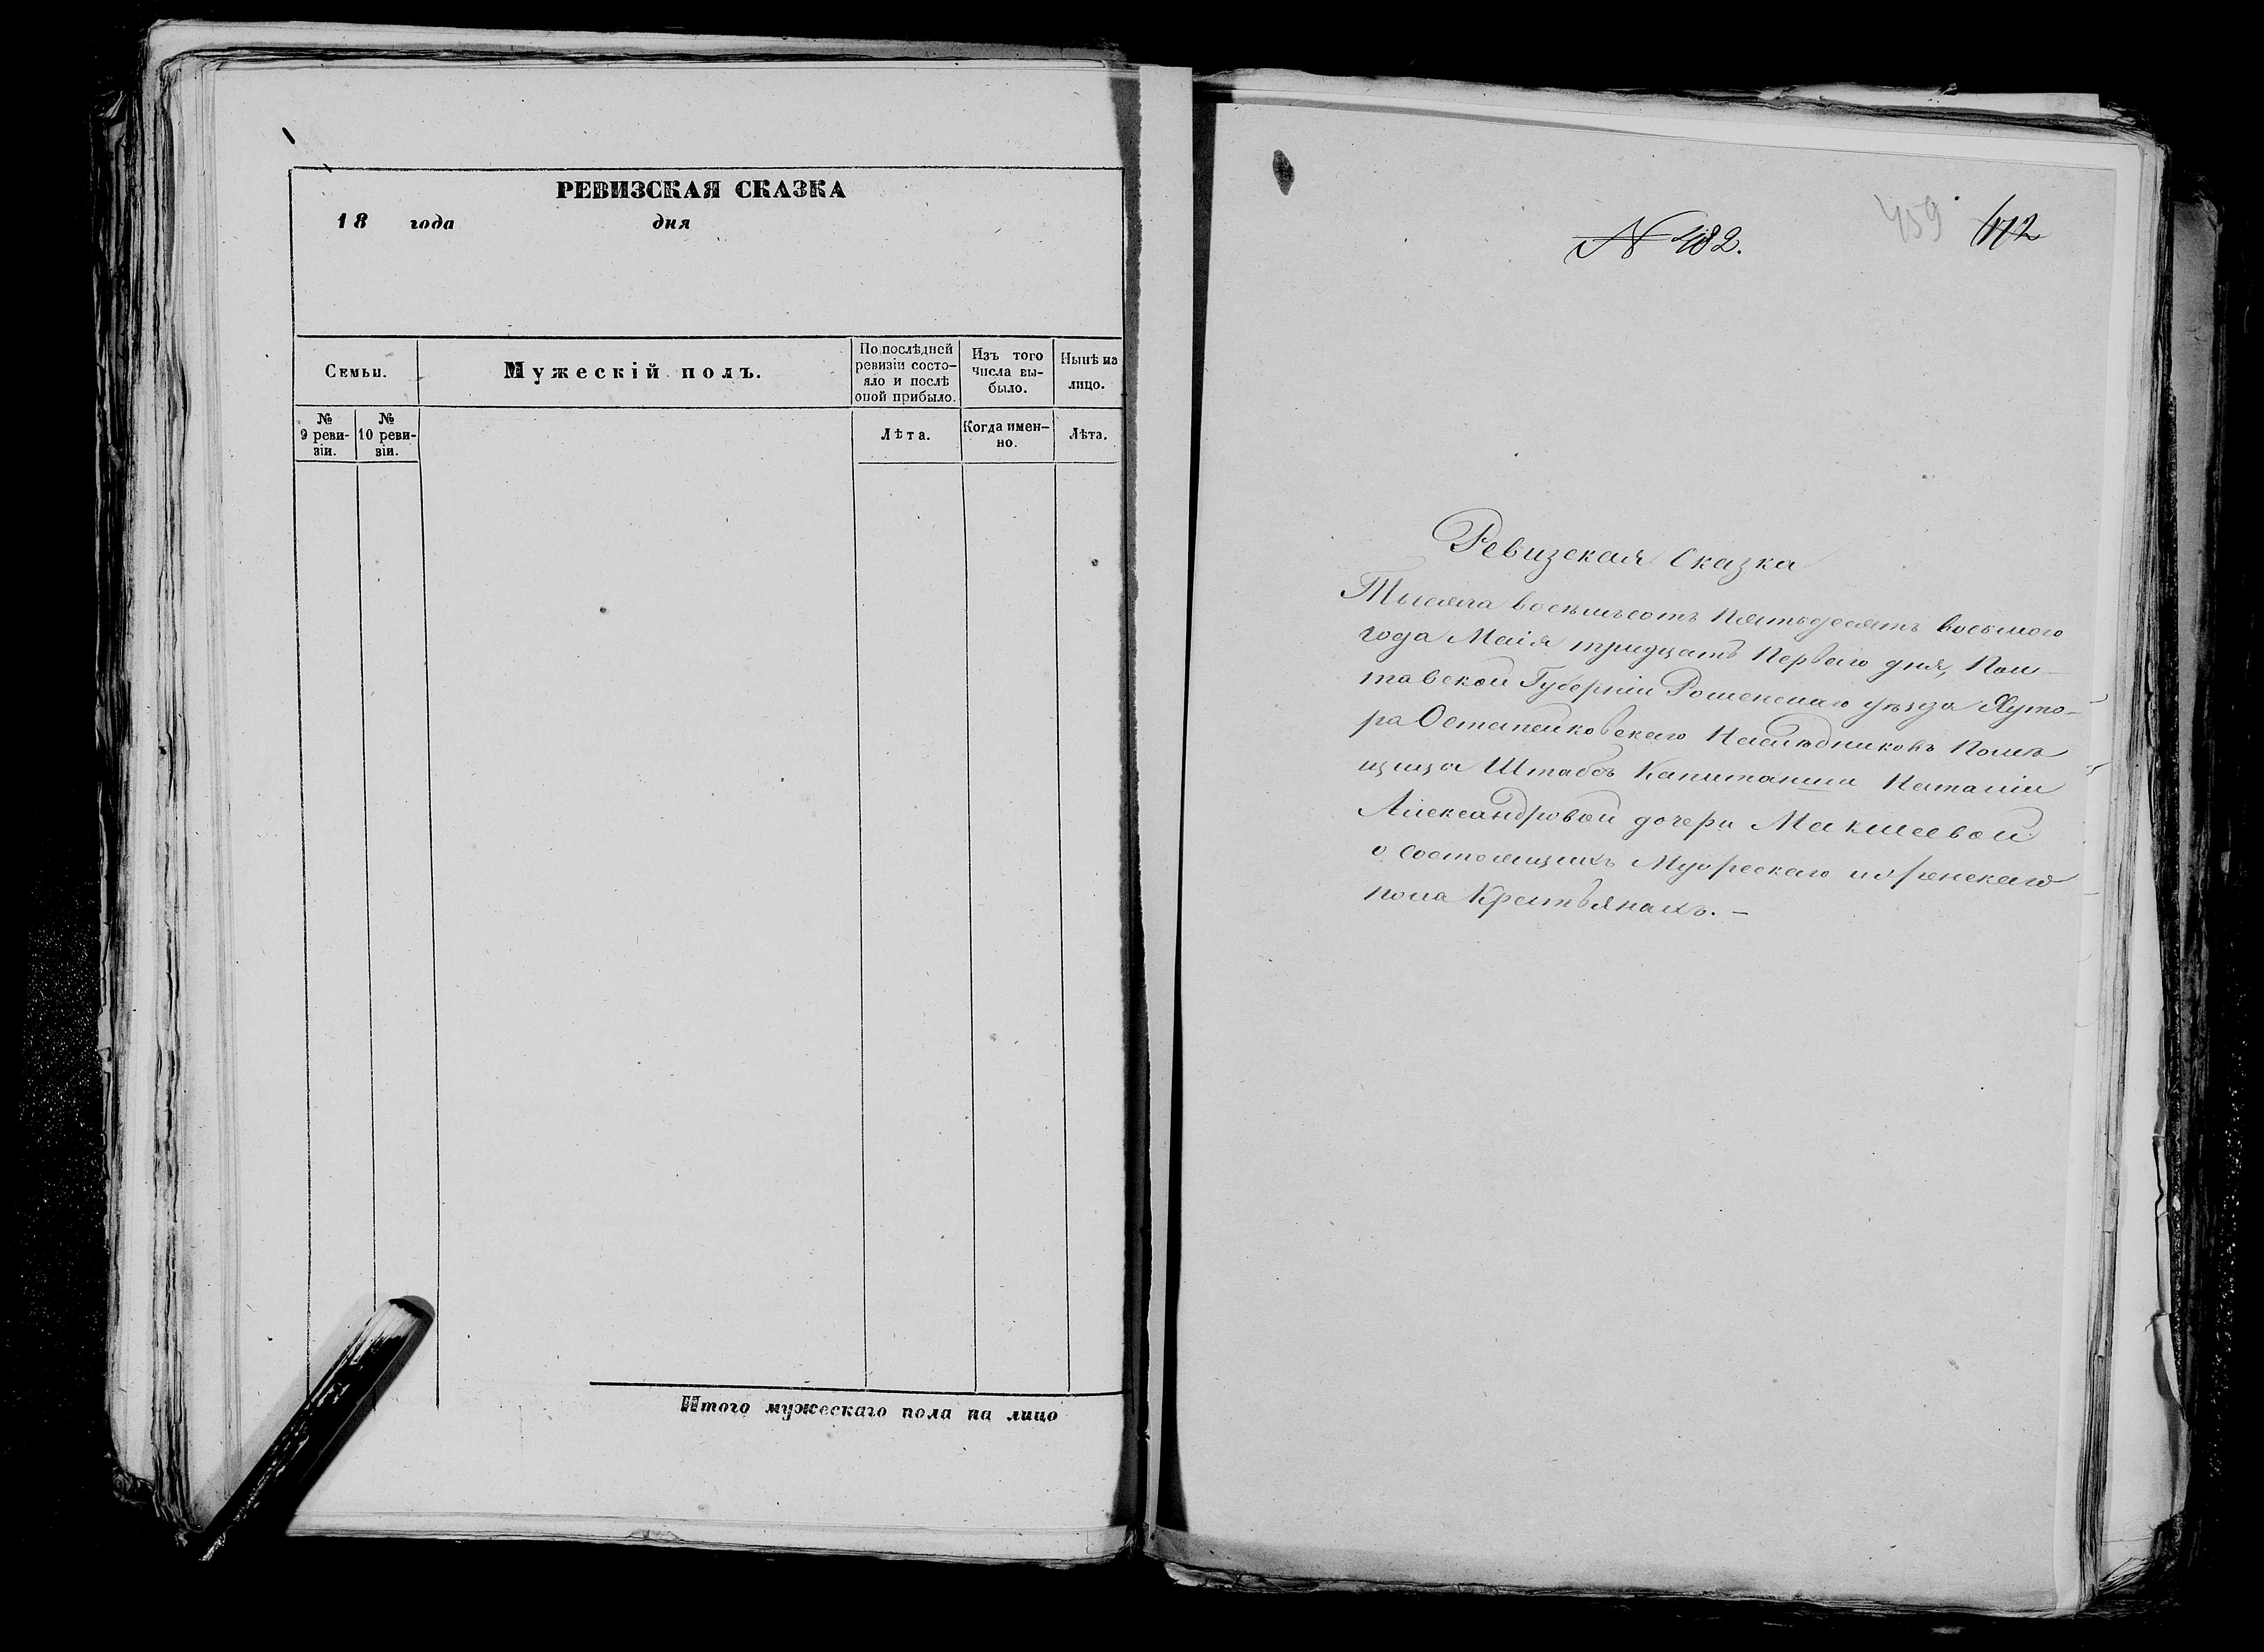 РЕВИЗСКАЯ СКАЗКА
18 года дня
Семьи.
Мужескій полъ.
По послѣдней
ревизіи состо-
яло и послѣ
оной прибыло.
Изъ того
числа вы-
было.
Нынѣ на
лицо.
№
9 реви-
зіи.
№
10 реви-
зіи.
Лѣта.
Когда имен-
но.
Лѣта.
Итого мужескаго пола на лицо
N 482.
459
472
Ревизская Сказка
Тысяча восемьсотъ Пятьдесятъ восьмого
года Маія тридцать Перваго дня, Пол-
тавской Губерніи Роменскаго уѣзда Хуто-
ра Остапенковскаго Наслѣдниковъ Помѣ
щица Штабсъ Капитанши Наталіи
Александровой дочери Макшеевой
о состоящихъ Мужескаго и женскаго
пола Крестьянахъ. -